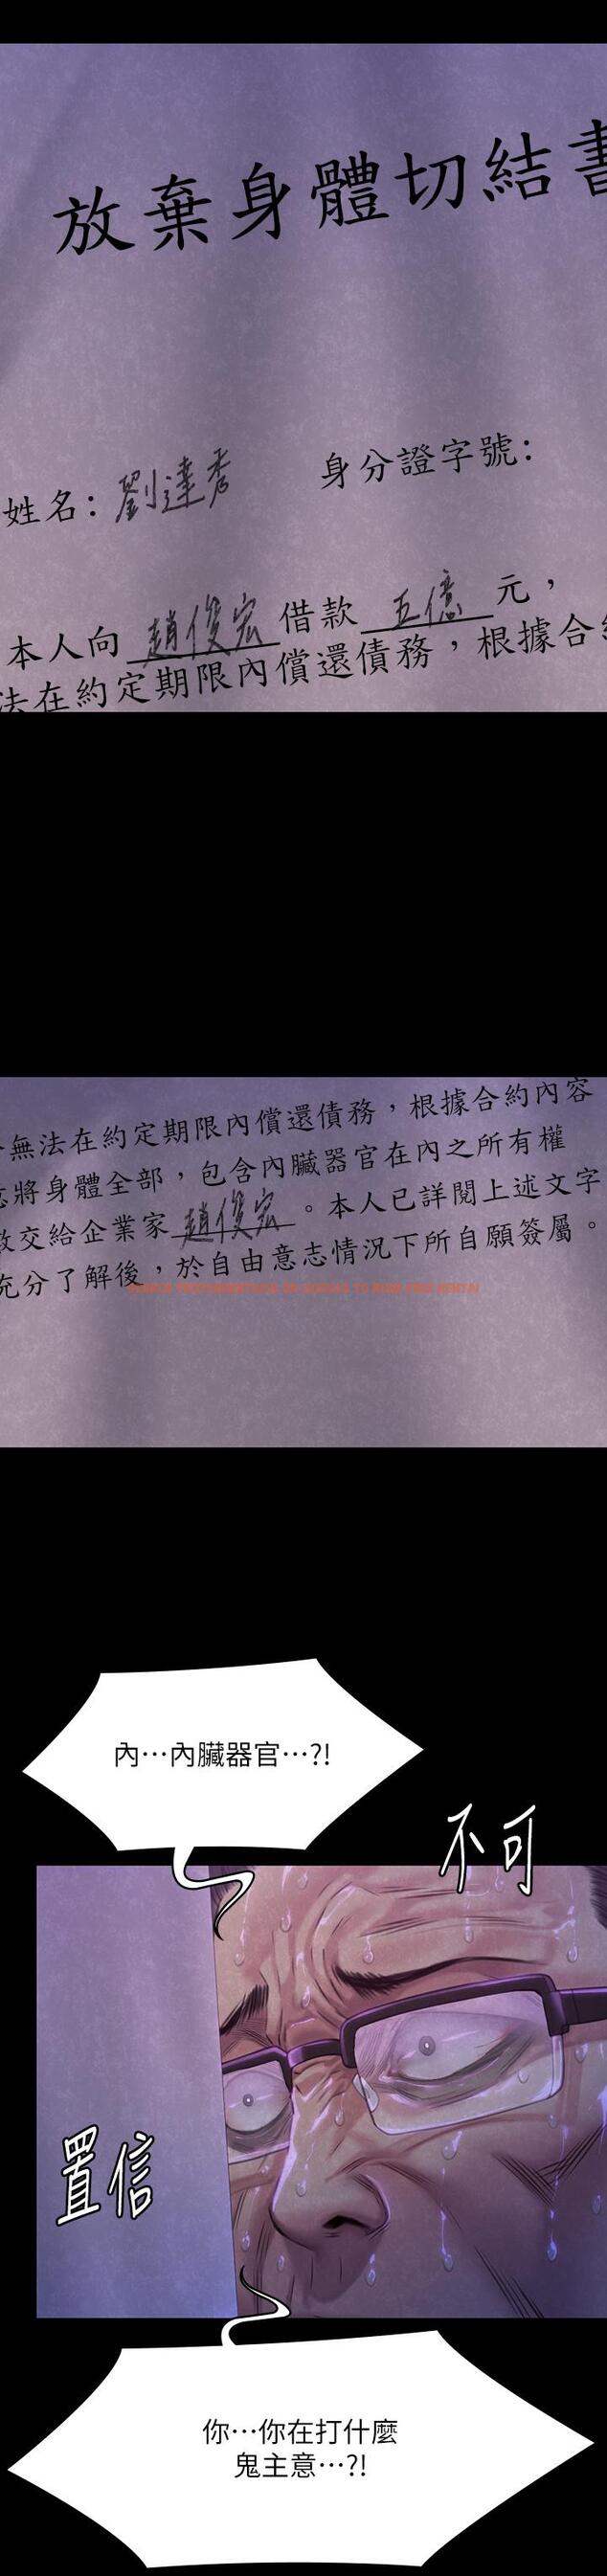 放棄身體切結書
姓名：劉達秀
身分證字號：
本人向趙俊宏借款五億元，
法在約定期限內償還債務，根據合約
無法在約定期限內償還債務，根據合約內容
將身體全部，包含內臟器官在內之所有權
交給企業家趙俊宏。本人已詳閱上述文字
充分了解後，於自由意志情況下所自願簽屬。
內…內臟器官…?!
不可
置信
你…你在打什麼
鬼主意…?!